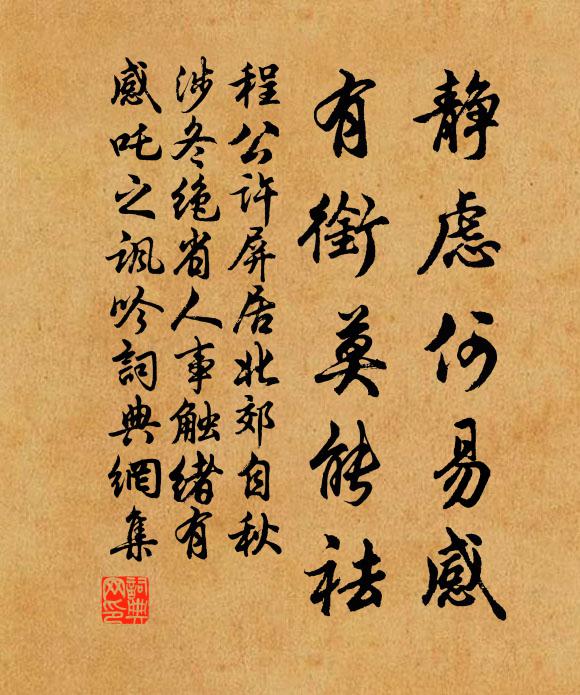 静慮何易感
有銜莫能祛
程公许屏居北郊自秋
涉冬绝省人事触绪有
感吒之讽吟詞典網集
詞典网印